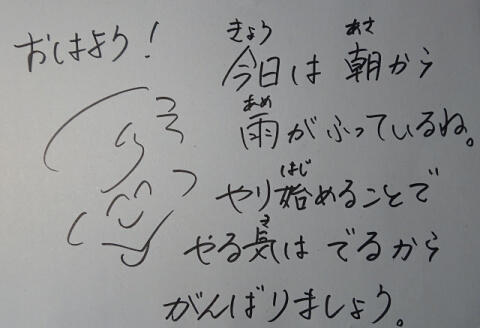 おはよう！
きょう　あさ
今日は 朝から
あめ
雨がふっているね。
はじ
やり始めることで
き
やる気は でるから
がんばりましょう。